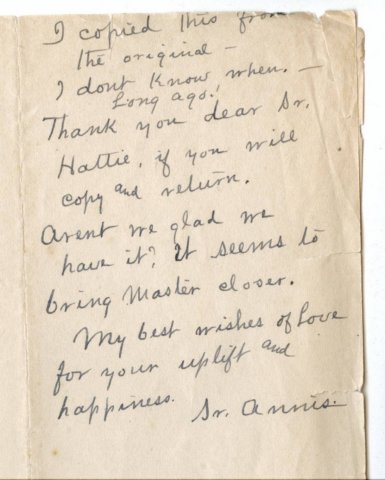 I copied this from
the original –
I dont know when. –
Long ago!
Thank you dear Sr.
Hattie, if you will
copy and return.
Arent we glad we
have it? It seems to
bring Master closer.
My best wishes of Love
for your uplift and
happiness.
Sr. Annis.